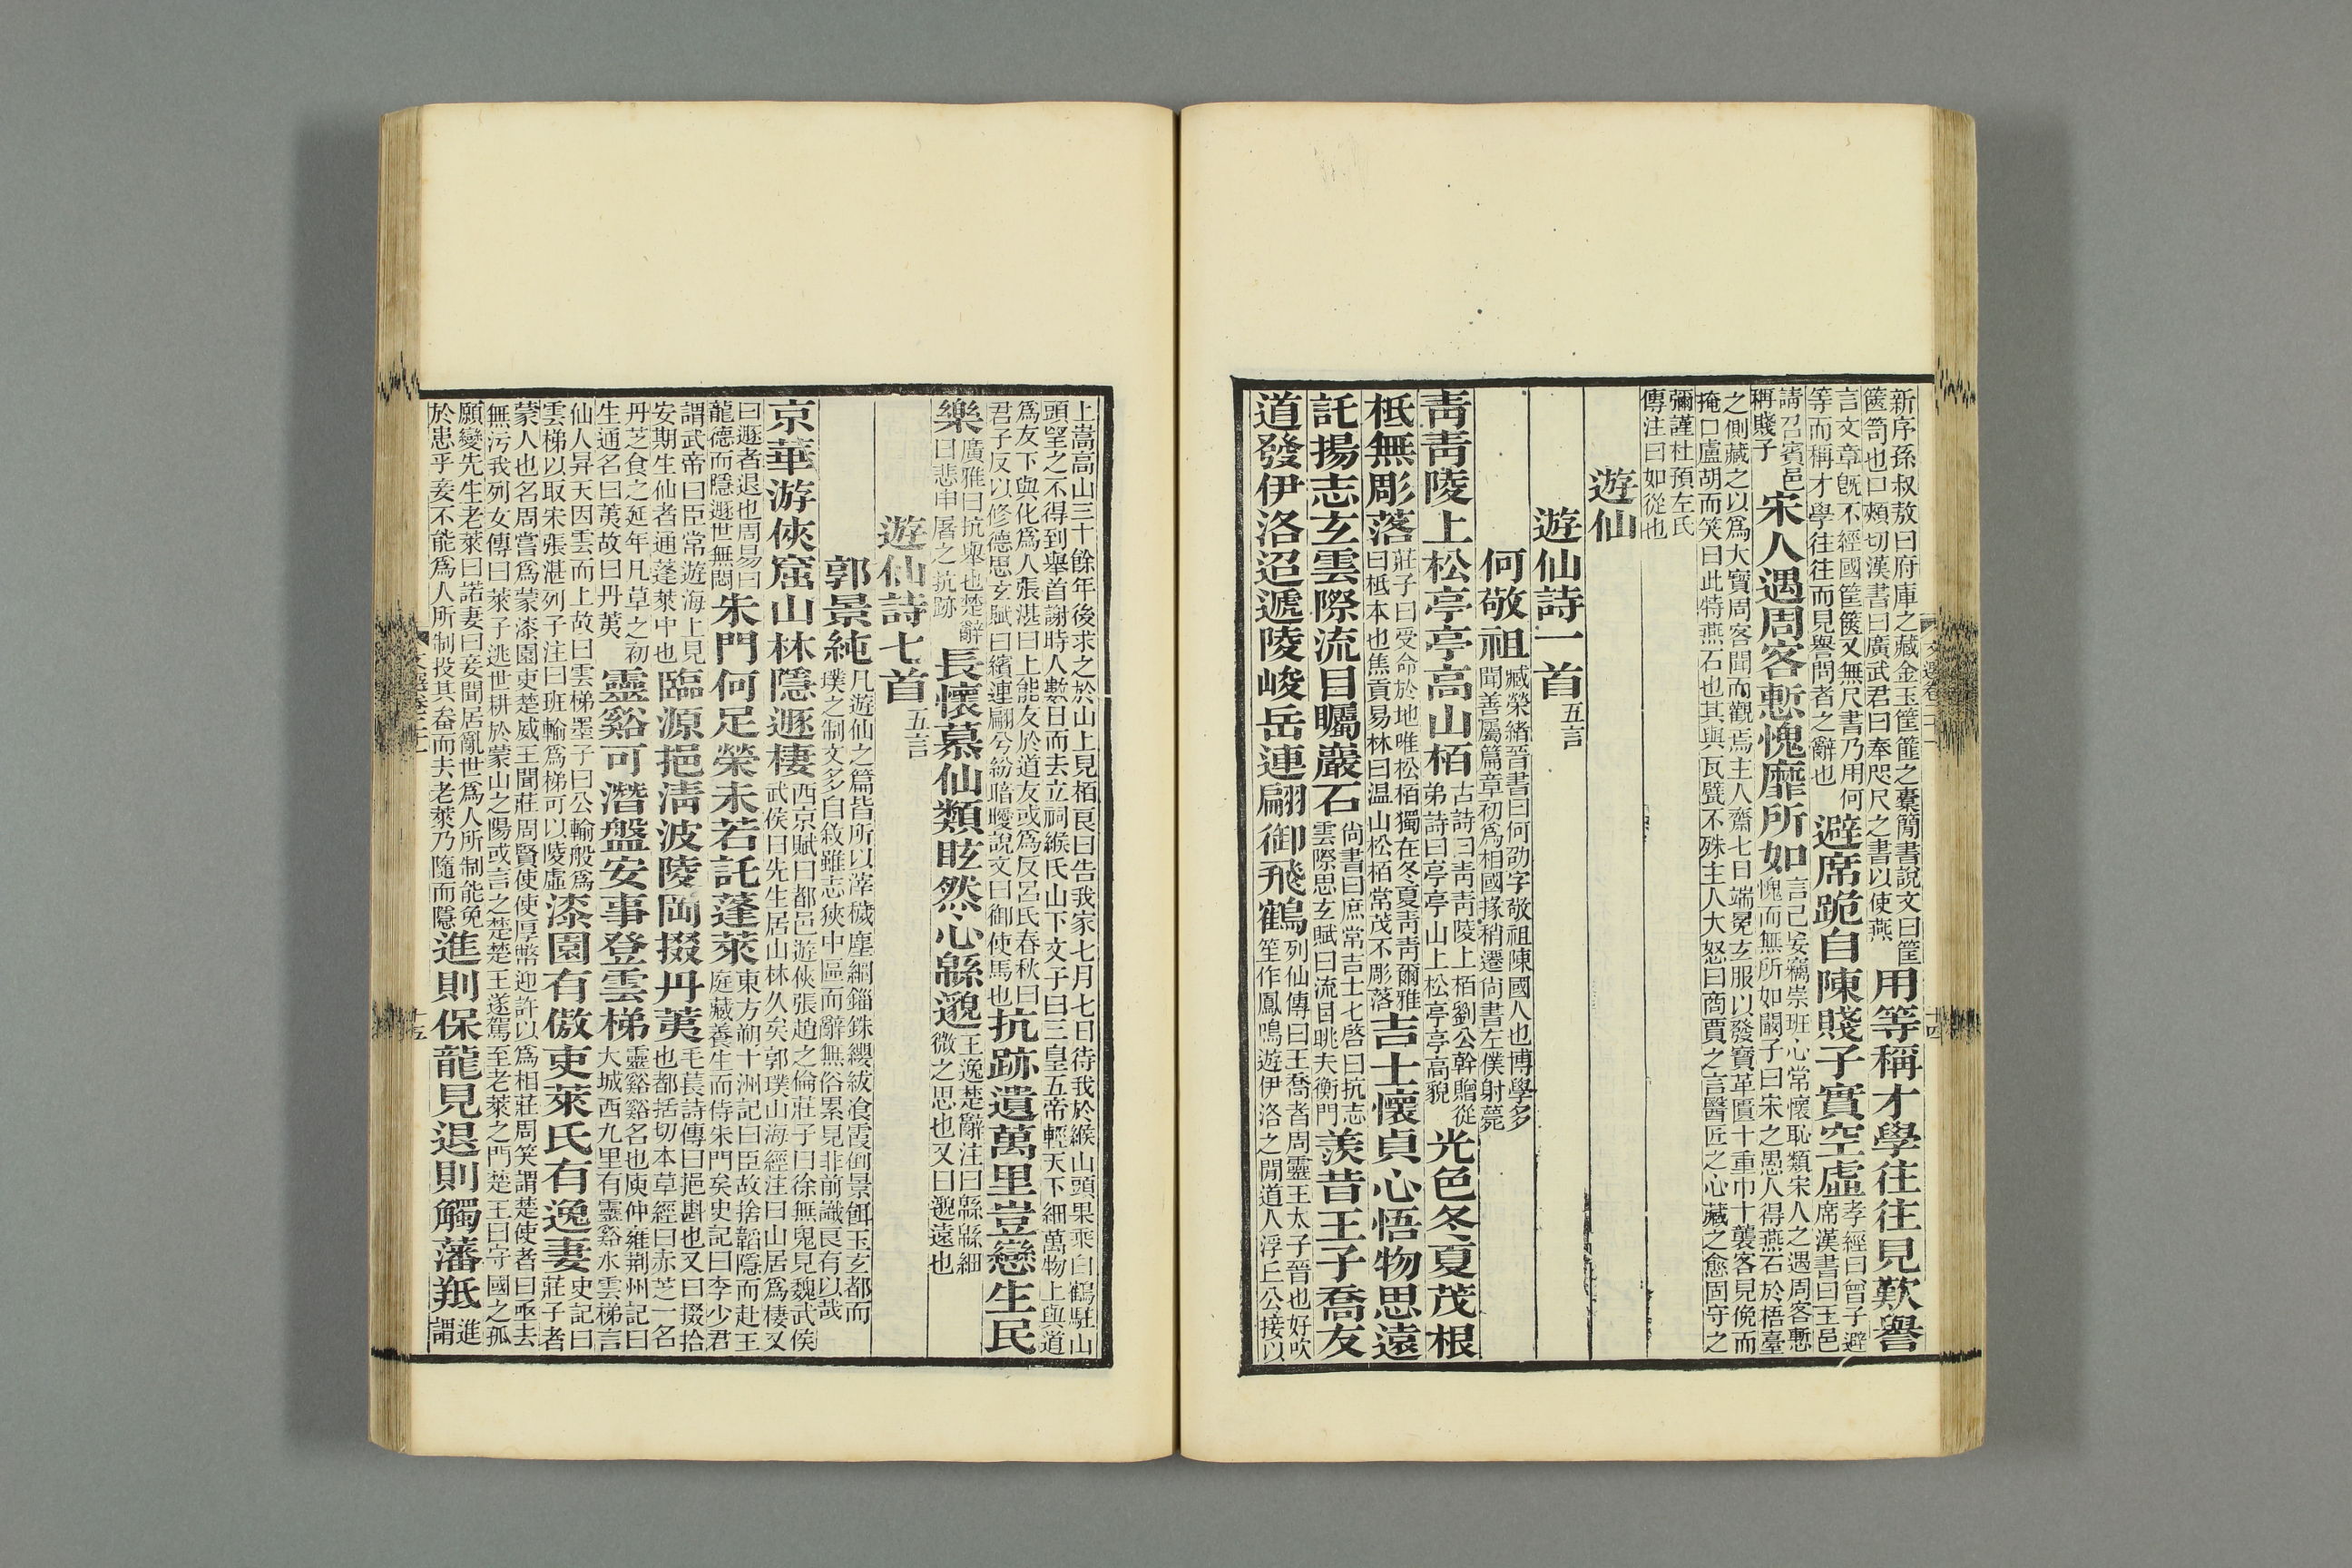 新序孫叔敖曰府庫之藏金玉筐篚之橐簡書說文曰筐
篋笥也口頰切漢書曰廣武君曰奉咫尺之書以使燕
用等稱才學往往見歎譽
言文章旣不經國筐篋又無尺書乃用何
等而稱才學往往而見譽問者之辭也
避席跪自陳賤子實空虛
孝經曰曾子避
席漢書曰王邑
請召賓邑
稱賤子
宋人遇周客慙愧靡所如
言己妄竊崇班心常懷恥類宋人之遇周客慙
愧而無所如闞子曰宋之愚人得燕石於梧臺
之側藏之以爲大寶周客聞而觀焉主人齋七日端冕玄服以發寶革匱十重巾十襲客見俛而
掩口盧胡而笑曰此特燕石也其與瓦甓不殊主人大怒曰商賈之言醫匠之心藏之愈固守之
彌謹杜預左氏
傳注曰如從也
遊仙
遊仙詩一首五言
何敬祖
臧榮緖晉書曰何劭字敬祖陳國人也博學多
聞善屬篇章初爲相國掾稍遷尙書左僕射薨
靑靑陵上松亭亭高山栢
古詩曰靑靑陵上栢劉公幹贈從
弟詩曰亭亭山上松亭亭高貌
光色冬夏茂根
柢無彫落
莊子曰受命於地唯松栢獨在冬夏靑靑爾雅
曰柢本也焦貢易林曰温山松栢常茂不彫落
吉士懷貞心悟物思遠
託揚志玄雲際流目矚巖石
尙書曰庶常吉士七啓曰抗志
雲際思玄賦曰流目眺夫衡門
羨昔王子喬友
道發伊洛迢遞陵峻岳連翩御飛鶴
列仙傳曰王喬者周靈王太子晉也好吹
笙作鳳鳴遊伊洛之閒道人浮丘公接以
上嵩高山三十餘年後求之於山上見栢良曰告我家七月七日待我於緱山頭果乘白鶴駐山
頭望之不得到舉首謝時人數日而去立祠緱氏山下文子曰三皇五帝輕天下細萬物上與道
爲友下與化爲人張湛曰上能友於道友或爲反呂氏春秋曰
君子反以修德思玄賦曰繽連翩兮紛暗曖說文曰御使馬也
抗跡遺萬里豈戀生民
樂
廣雅曰抗舉也楚辭
曰悲申屠之抗跡
長懷慕仙類眩然心緜邈
王逸楚辭注曰緜緜細
微之思也又曰邈遠也
遊仙詩七首五言
郭景純
凡遊仙之篇皆所以滓穢塵網錙銖纓紱飡霞倒景餌玉玄都而
璞之制文多自敘雖志狹中區而辭無俗累見非前識良有以哉
京華游俠窟山林隱遯棲
西京賦曰都邑遊俠張趙之倫莊子曰徐無鬼見魏武侯
武侯曰先生居山林久矣郭璞山海經注曰山居爲棲又
曰遯者退也周易曰
龍德而隱遯世無悶
朱門何足榮未若託蓬萊
東方朔十洲記曰臣故捨韜隱而赴王
庭藏養生而侍朱門矣史記曰李少君
謂武帝曰臣常遊海上見
安期生仙者通蓬萊中也
臨源挹淸波陵岡掇丹荑
毛萇詩傳曰挹㪺也又曰掇拾
也都括切本草經曰赤芝一名
丹芝食之延年凡草之初
生通名曰荑故曰丹荑
靈谿可潛盤安事登雲梯
靈谿谿名也庾仲雍荆州記曰
大城西九里有靈谿水雲梯言
仙人昇天因雲而上故曰雲梯墨子曰公輸般爲
雲梯以取宋張湛列子注曰班輸爲梯可以陵虛
漆園有傲吏萊氏有逸妻
史記曰
莊子者
蒙人也名周嘗爲蒙漆園吏楚威王聞莊周賢使使厚幣迎許以爲相莊周笑謂楚使者曰亟去
無污我列女傳曰萊子逃世耕於蒙山之陽或言之楚楚王遂駕至老萊之門楚王曰守國之孤
願變先生老萊曰諾妻曰妾聞居亂世爲人所制能免
於患乎妾不能爲人所制投其畚而去老萊乃隨而隱
進則保龍見退則觸藩羝
進
謂